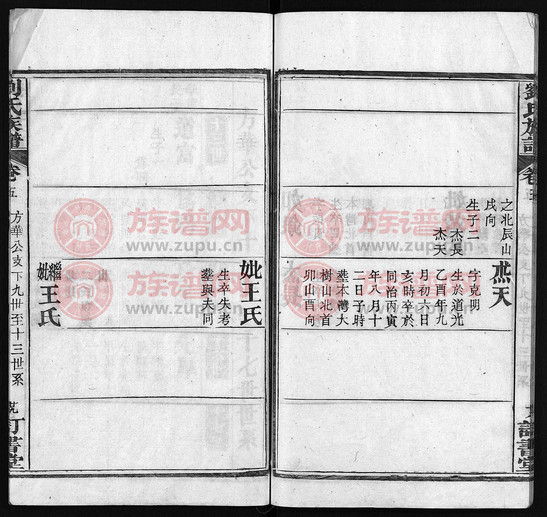 之北辰山
戌向
生子二
杰長
杰天
杰天
字克明
生於道光
乙酉年九
月初六日
亥時卒於
同治丙寅
年八月十
二日子時
葬木灣大
樹山北首
卯山酉向
妣王氏
生卒失考
葬與夫同
繼妣王氏
劉氏族譜
卷五
方華公支下九世至十三世系
訂書堂
劉氏族譜
卷五
族谱网
www.zupu.cn
族谱网
www.zupu.cn
族谱网
www.zupu.cn
族谱网
www.zupu.cn